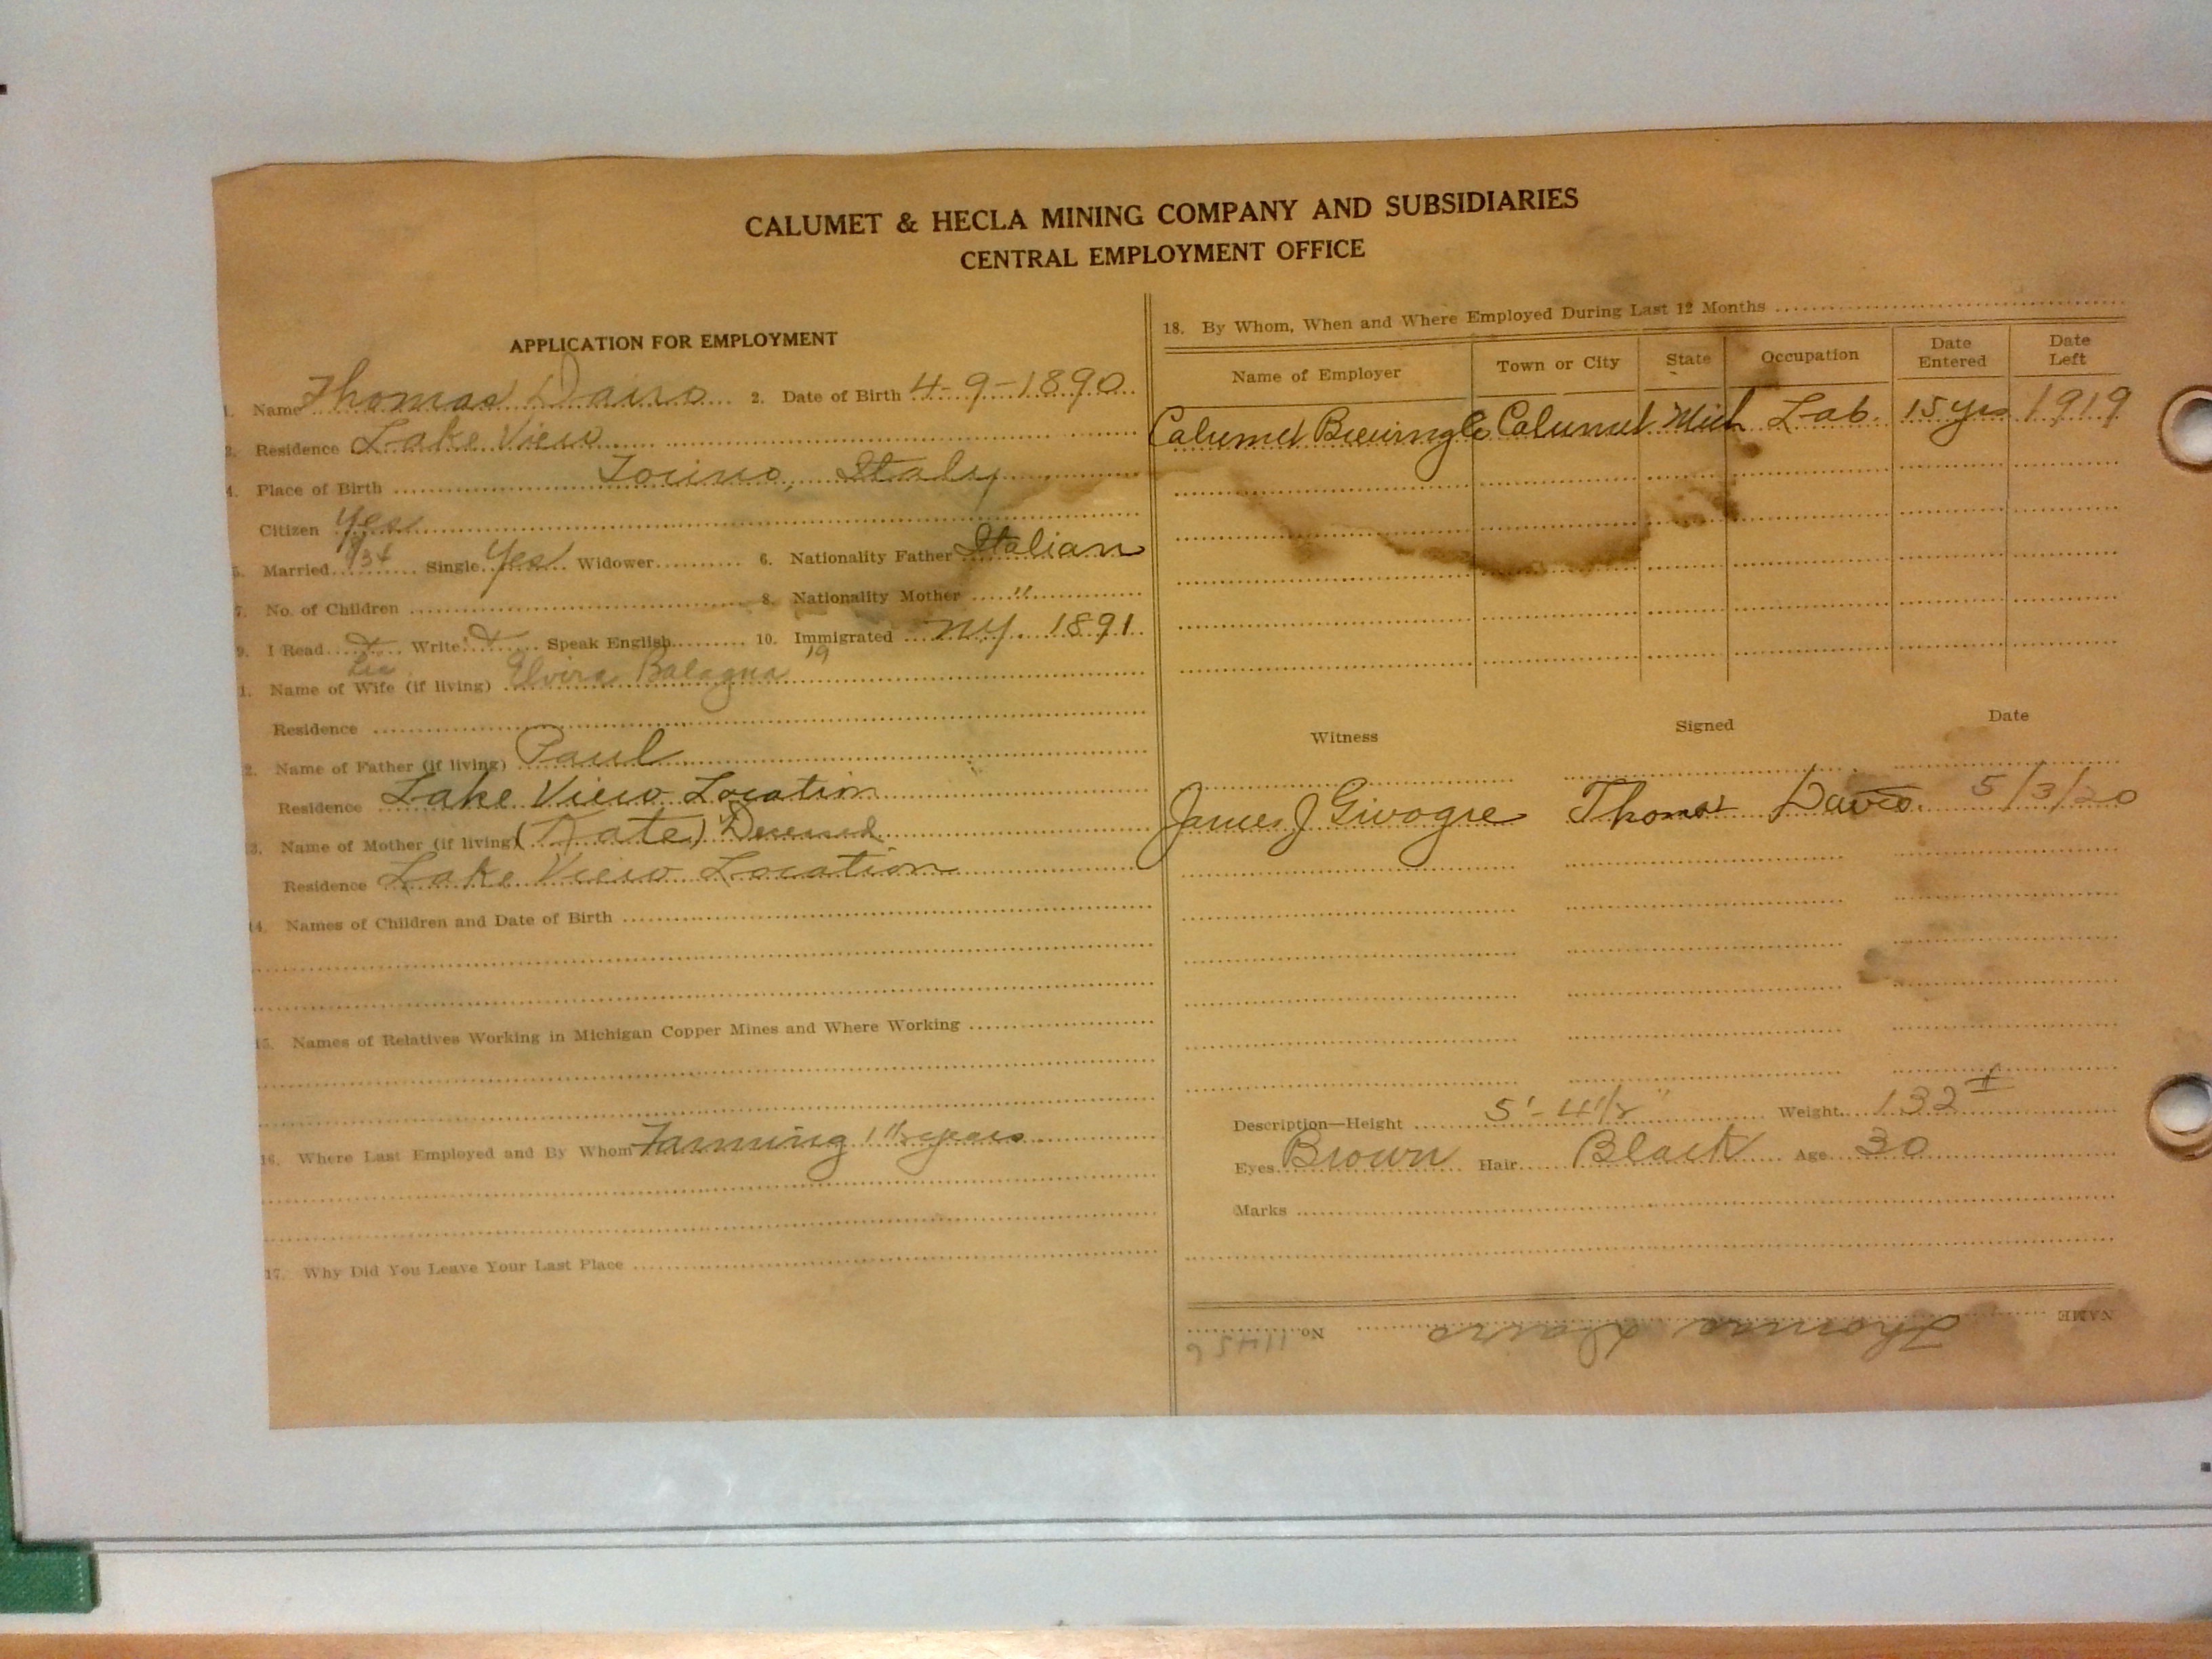 CALUMET & HECLA MINING COMPANY AND SUBSIDIARIES
CENTRAL EMPLOYMENT OFFICE
APPLICATION FOR EMPLOYMENT
1. Name Thomas Dairo 2. Date of Birth 4-9-1890
3. Residence Lake View
4. Place of Birth Torino, Italy
Citizen Yes
5. Married 9/34 Single Yes Widower 6. Nationality Father Italian
7. No. of Children 8. Nationality Mother "
9. I Read Write Speak English 10. Immigrated N.Y. 1891
11. Name of Wife (if living) Elvira Balagna 19
Residence
12. Name of Father (if living) Paul
Residence Lake View Location
13. Name of Mother (if living) (Kate) Deceased
Residence Lake View Location
14. Names of Children and Date of Birth
15. Names of Relatives Working in Michigan Copper Mines and Where Working
16. Where Last Employed and By Whom Farming 1 years
17. Why Did You Leave Your Last Place
18. By Whom, When and Where Employed During Last 12 Months
Name of Employer Town or City State Occupation Date Entered Date Left
Calumet Brewing Co Calumet Mich Lab. 15 yrs 1919
Witness Signed Date
James J Givogre Thomas Dairo. 5/3/20
Description—Height 5'-4 1/2" Weight 132 #
Eyes Brown Hair Black Age 30
Marks
NAME Thomas Dairo No. 11456